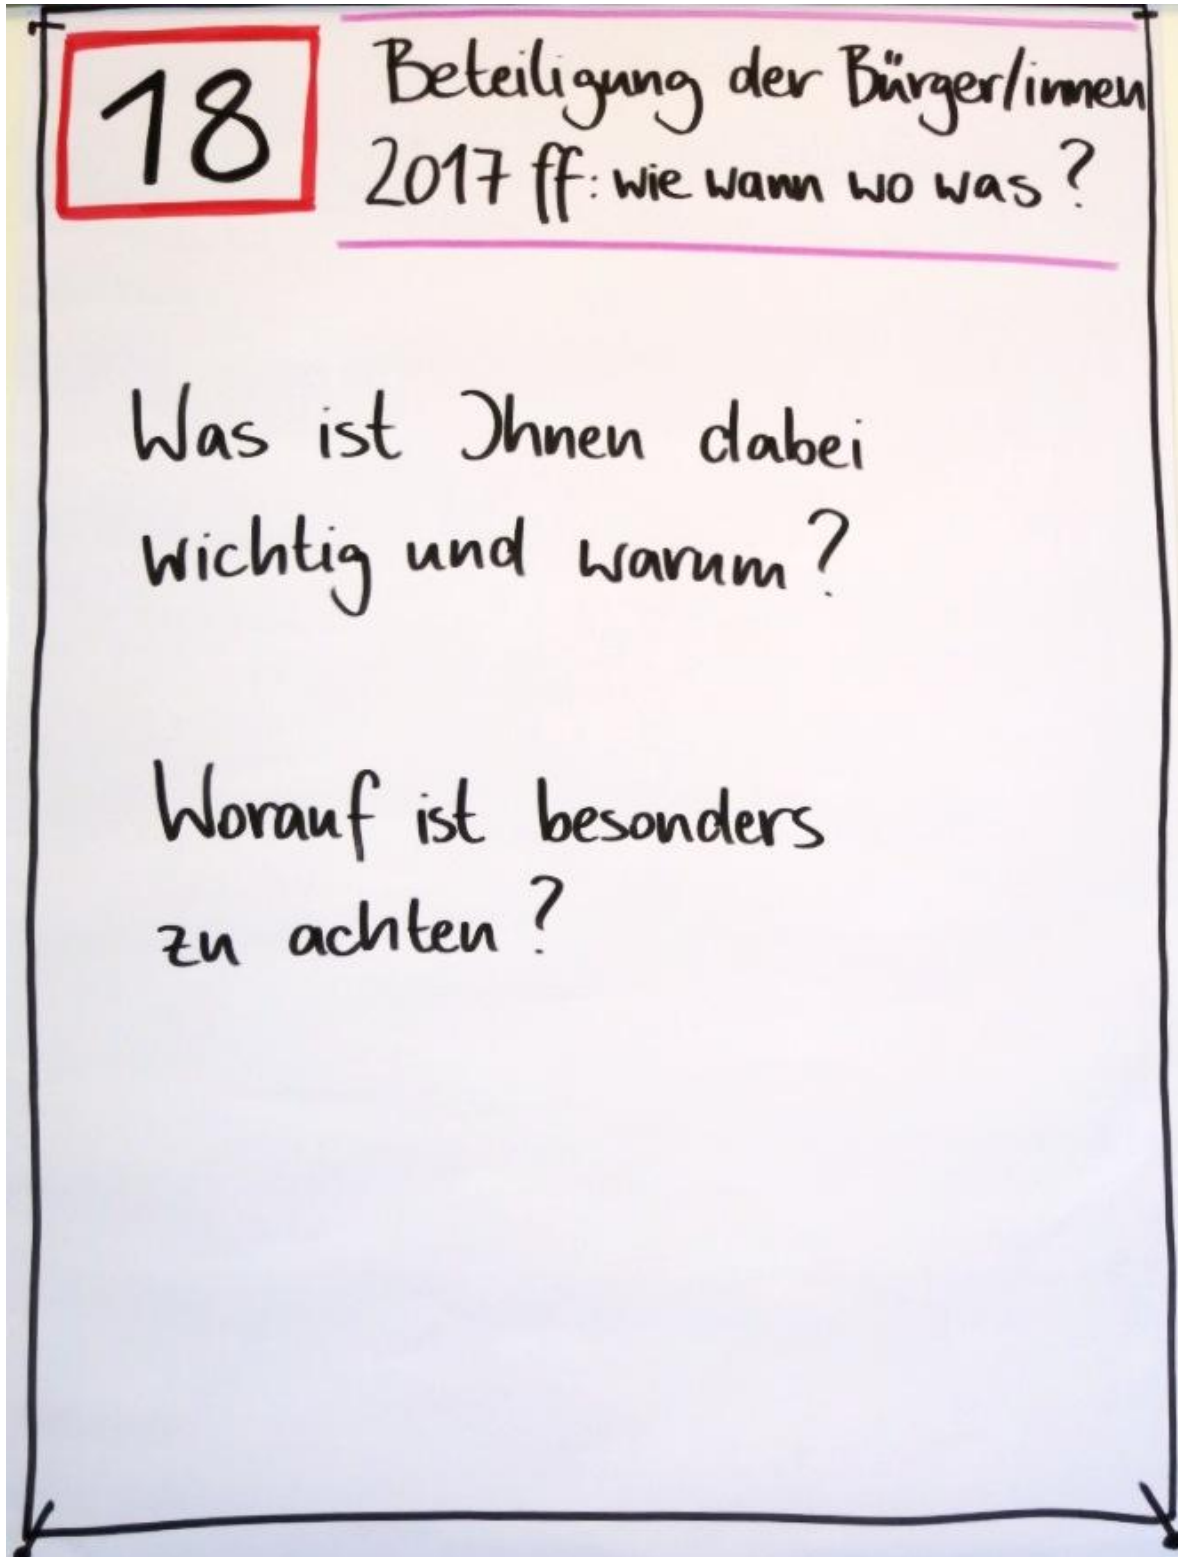 18
Beteiligung der Bürger/innen
2017 ff: wie wann wo was?
Was ist Ihnen dabei
wichtig und warum?
Worauf ist besonders
zu achten?